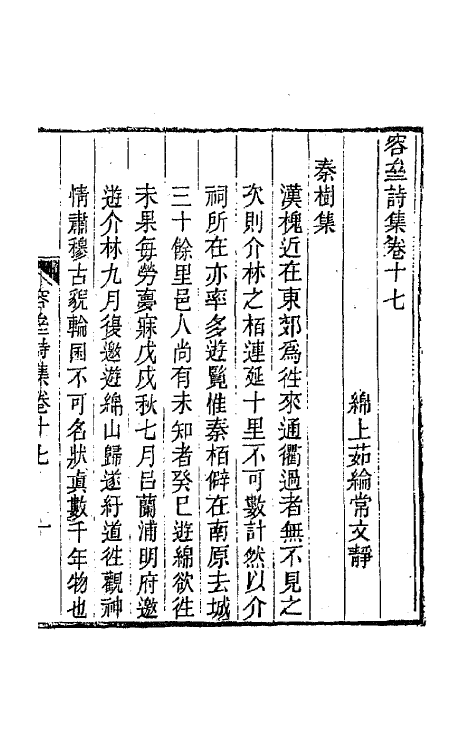 容壘詩集卷十七
綿上茹綸常文靜
秦樹集
漢槐近在東郊爲徃來通衢過者無不見之
次則介林之栢連延十里不可數計然以介
祠所在亦率多遊覧惟秦栢僻在南原去城
三十餘里邑人尚有未知者癸巳遊綿欲徃
未果毎勞夢寐戊戌秋七月呂蘭浦明府邀
遊介林九月復邀遊綿山歸遂紆道徃觀神
情肅穆古貌輪囷不可名狀眞數千年物也
容壘詩集卷十七
一